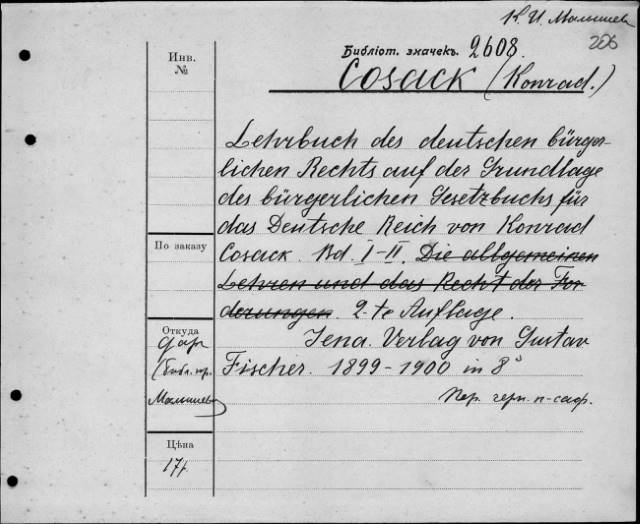 К. И. Малышев
206
Библіот. значекъ. 2608.
Инв.
№
Cosack (Konrad.)
Lehrbuch des deutschen bürger-
lichen Rechts auf der Grundlage
des bürgerlichen Gesetzbuchs für
das Deutsche Reich von Konrad
По заказу
Cosack. Bd. I-II. Die allgemeinen
Lehren und das Recht der For
derungen. 2-te Auflage.
Откуда
дар
Jena. Verlag von Gustav
(Библ. пр.
Fischer. 1899-1900 in 8°
Малышева)
Пер. черн. п-саф.
Цѣна
17р.